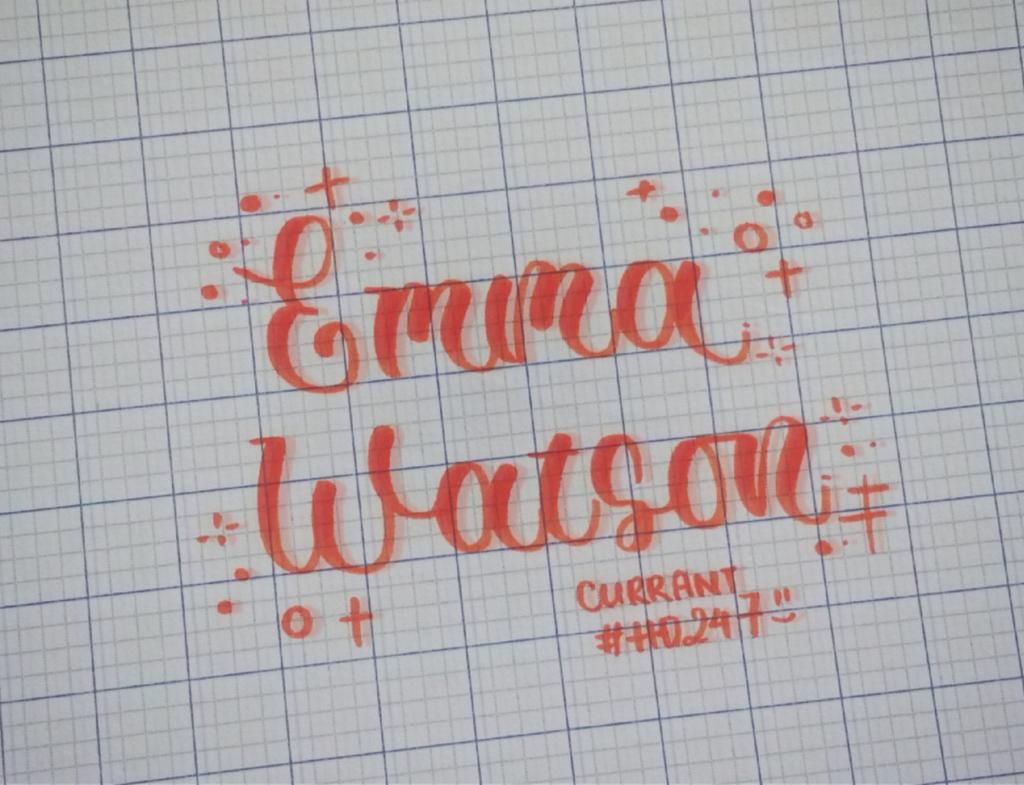 Emma
Watson
CURRANT
#H0247